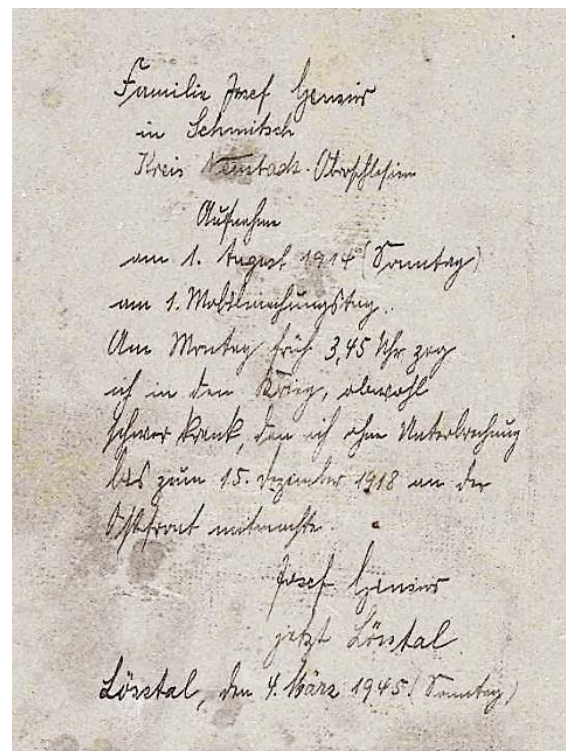 Familie Josef Gensior
in Schmitsch
Kreis Neustadt-Oberschlesien
Aufnahme
am 1. August 1914 (Sonntag)
am 1. Mobilmachungstag.
Am Montag früh 3,45 Uhr zog
ich in den Krieg, obwohl
schwer krank, den ich ohne Unterbrechung
bis zum 15. Dezember 1918 an der
Ostfront mitmachte.
Josef Gensior
jetzt Lösstal
Lösstal, den 4. März 1945 (Sonntag)